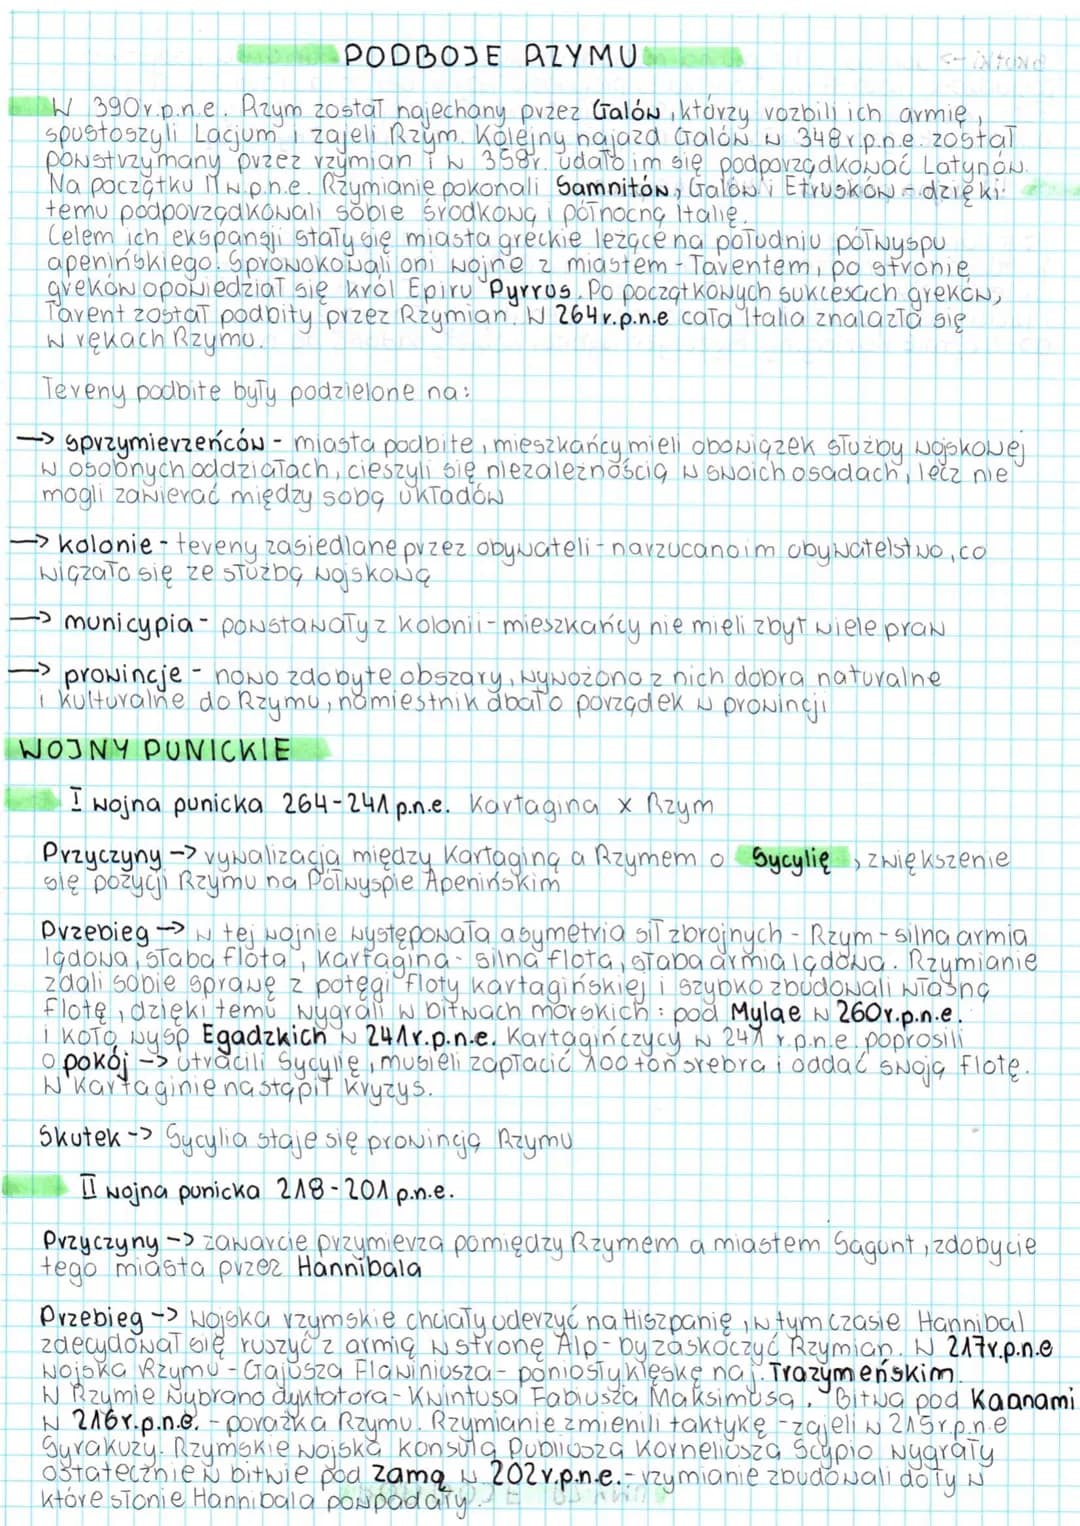 PODBOJE RZYMU
W 390r.p.n.e. Rzym został najechany przez Galów, którzy rozbili ich armię,
spustoszyli Lacjum i zajeli Rzym. Kolejny najazd Galów w 348r.p.n.e. został
powstrzymany przez rzymian i w 358r. udało im się podporządkować Latynów.
Na początku w.p.n.e. Rzymianie pokonali Samnitów, Galów i Etrusków - dzięki
temu podporządkowali sobie środkową i północną Italię.
Celem ich ekspansji stały się miasta greckie leżące na południu półwyspu
apenińskiego. Sprowokowali oni wojnę z miastem - Tarentem, po stronie
greków opowiedział się król Epiru Pyrrus. Po początkowych sukcesach greków,
Tarent został podbity przez Rzymian. W 264r.p.n.e cała Italia znalazła się
w rękach Rzymu.
Tereny podbite były podzielone na:
→ sprzymierzeńców - miasta podbite, mieszkańcy mieli obowiązek służby wojskowej
w osobnych oddziałach, cieszyli się niezależnością w swoich osadach, lecz nie
mogli zawierać między sobą układów
→ kolonie - tereny zasiedlane przez obywateli - narzucano im obywatelstwo, co
wiązało się ze służbą wojskową
→ municypia - powstawały z kolonii - mieszkańcy nie mieli zbyt wiele praw
→ prowincje - nowo zdobyte obszary, wywożono z nich dobra naturalne
i kulturalne do Rzymu, namiestnik dbał o porządek w prowincji
WOJNY PUNICKIE
I wojna punicka 264-241 p.n.e. Kartagina x Rzym
Przyczyny → rywalizacja między Kartaginą a Rzymem o Sycylię, zwiększenie
się pozycji Rzymu na Półwyspie Apenińskim
Przebieg → w tej wojnie występowała asymetria sił zbrojnych - Rzym - silna armia
lądowa, słaba flota, kartagina - silna flota, słaba armia lądowa. Rzymianie
zdali sobie sprawę z potęgi floty kartagińskiej i szybko zbudowali własną
flotę, dzięki temu wygrali w bitwach morskich: pod Mylae w 260r.p.n.e.
i koło wysp Egadzkich w 241r.p.n.e. Kartagińczycy w 241 r.p.n.e. poprosili
o pokój → utracili Sycylię, musieli zapłacić 100 ton srebra i oddać swoją flotę.
W Kartaginie nastąpił kryzys.
Skutek → Sycylia staje się prowincją Rzymu
II wojna punicka 218-201 p.n.e.
Przyczyny → zawarcie przymierza pomiędzy Rzymem a miastem Sagunt, zdobycie
tego miasta przez Hannibala
Przebieg → wojska rzymskie chciały uderzyć na Hiszpanię, w tym czasie Hannibal
zdecydował się ruszyć z armią w stronę Alp - by zaskoczyć Rzymian. W 217r.p.n.e
wojska Rzymu - Gajusza Flawiniusza - poniosły klęskę na j. Trazymeńskim.
W Rzymie wybrano dyktatora - Kwintusa Fabiusza Maksimusa. Bitwa pod Kaanami
w 216r.p.n.e. - porażka Rzymu. Rzymianie zmienili taktykę - zajeli w 215r.p.n.e
Syrakuzy. Rzymskie wojska konsula Publiusza Korneliusza Scypio wygrały
ostatecznie w bitwie pod Zamą w 202r.p.n.e. - rzymianie zbudowali doły w
które słonie Hannibala powpadały.